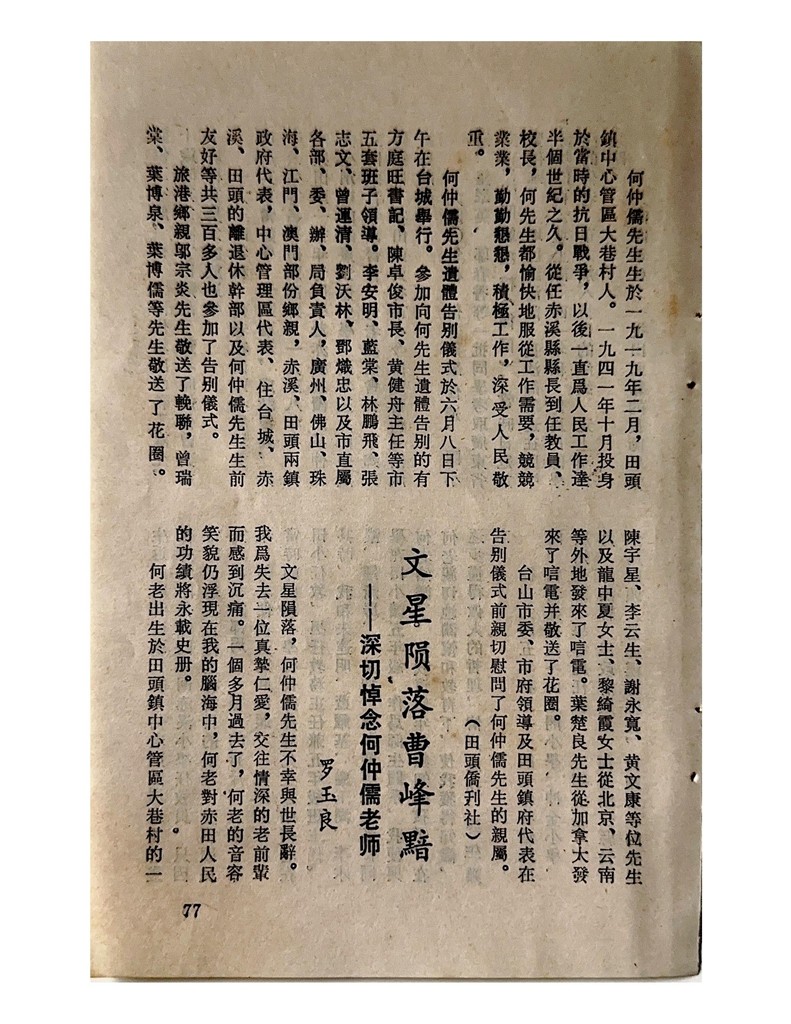 何仲儒先生生於一九一九年二月，田頭
鎮中心管區大巷村人。一九四一年十月投身
於當時的抗日戰爭，以後一直爲人民工作達
半個世紀之久。從任赤溪縣縣長到任教員、
校長，何先生都愉快地服從工作需要，兢兢
業業，勤勤懇懇，積極工作，深受人民敬
重。
何仲儒先生遺體告别儀式於六月八日下
午在台城舉行。參加向何先生遺體告别的有
方庭旺書記、陳卓俊市長、黄健舟主任等市
五套班子領導。李安明、藍棠、林鵬飛、張
志文、曾運清、劉沃林、鄧熾忠以及市直屬
各部、委、辦、局負責人，廣州、佛山、珠
海、江門、澳門部份鄉親，赤溪、田頭兩鎮
政府代表，中心管理區代表、住台城、赤
溪、田頭的離退休幹部以及何仲儒先生生前
友好等共三百多人也參加了告别儀式。
旅港鄉親鄔宗炎先生敬送了輓聯，曾瑞
棠、葉博泉、葉博儒等先生敬送了花圈。
陳宇星、李云生、謝永寬、黄文康等位先生
以及龍中夏女士、黎綺霞女士從北京、云南
等外地發來了唁電。葉楚良先生從加拿大發
來了唁電并敬送了花圈。
台山市委、市府領導及田頭鎮府代表在
告别儀式前親切慰問了何仲儒先生的親屬。
（田頭僑刊社）
文星陨落曹峰黯
——深切悼念何仲儒老师
罗玉良
文星隕落，何仲儒先生不幸與世長辭。
我爲失去一位真摯仁愛，交往情深的老前輩
而感到沉痛。一個多月過去了，何老的音容
笑貌仍浮現在我的腦海中，何老對赤田人民
的功績將永載史册。
何老出生於田頭鎮中心管區大巷村的一
77